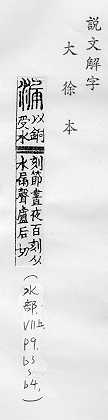 說文解字
大徐本
漏 以銅受水
刻節晝夜百刻从
水屚聲盧后切
(水部. VII上 P9. b3 s b4.)